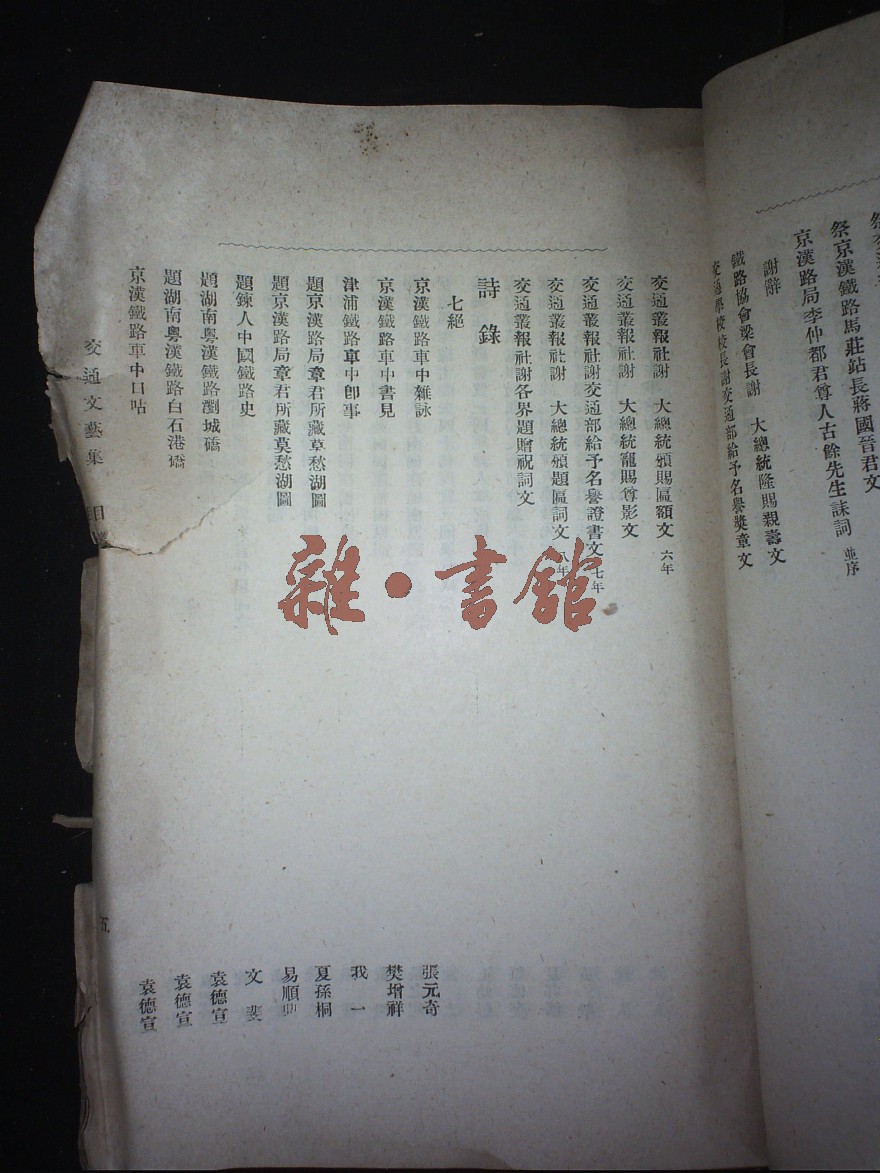 祭京漢鐵路馬莊站長蔣國晉君文
京漢路局李仲都君尊人古餘先生誄詞 並序
謝辭
鐵路協會梁會長謝 大總統隆賜親壽文
交通學校校長謝交通部給予名譽奬章文
交通叢報社謝 大總統頒賜匾額文 六年
交通叢報社謝 大總統寵賜尊影文
交通叢報社謝交通部給予名譽證書文 七年
交通叢報社謝 大總統頒題匾詞文 八年
交通叢報社謝各界題贈祝詞文
詩錄
七絕
京漢鐵路車中雜詠 張元奇
京漢鐵路車中書見 樊增祥
津浦鐵路車中卽事 我一
題京漢路局章君所藏莫愁湖圖 夏孫桐
題京漢路局章君所藏莫愁湖圖 易順鼎
題鍊人中國鐵路史 文斐
題湖南粵漢鐵路瀏城礄 袁德宣
題湖南粵漢鐵路白石港礄 袁德宣
京漢鐵路車中口呫 袁德宣
交通文藝集 目
五
雜·書館